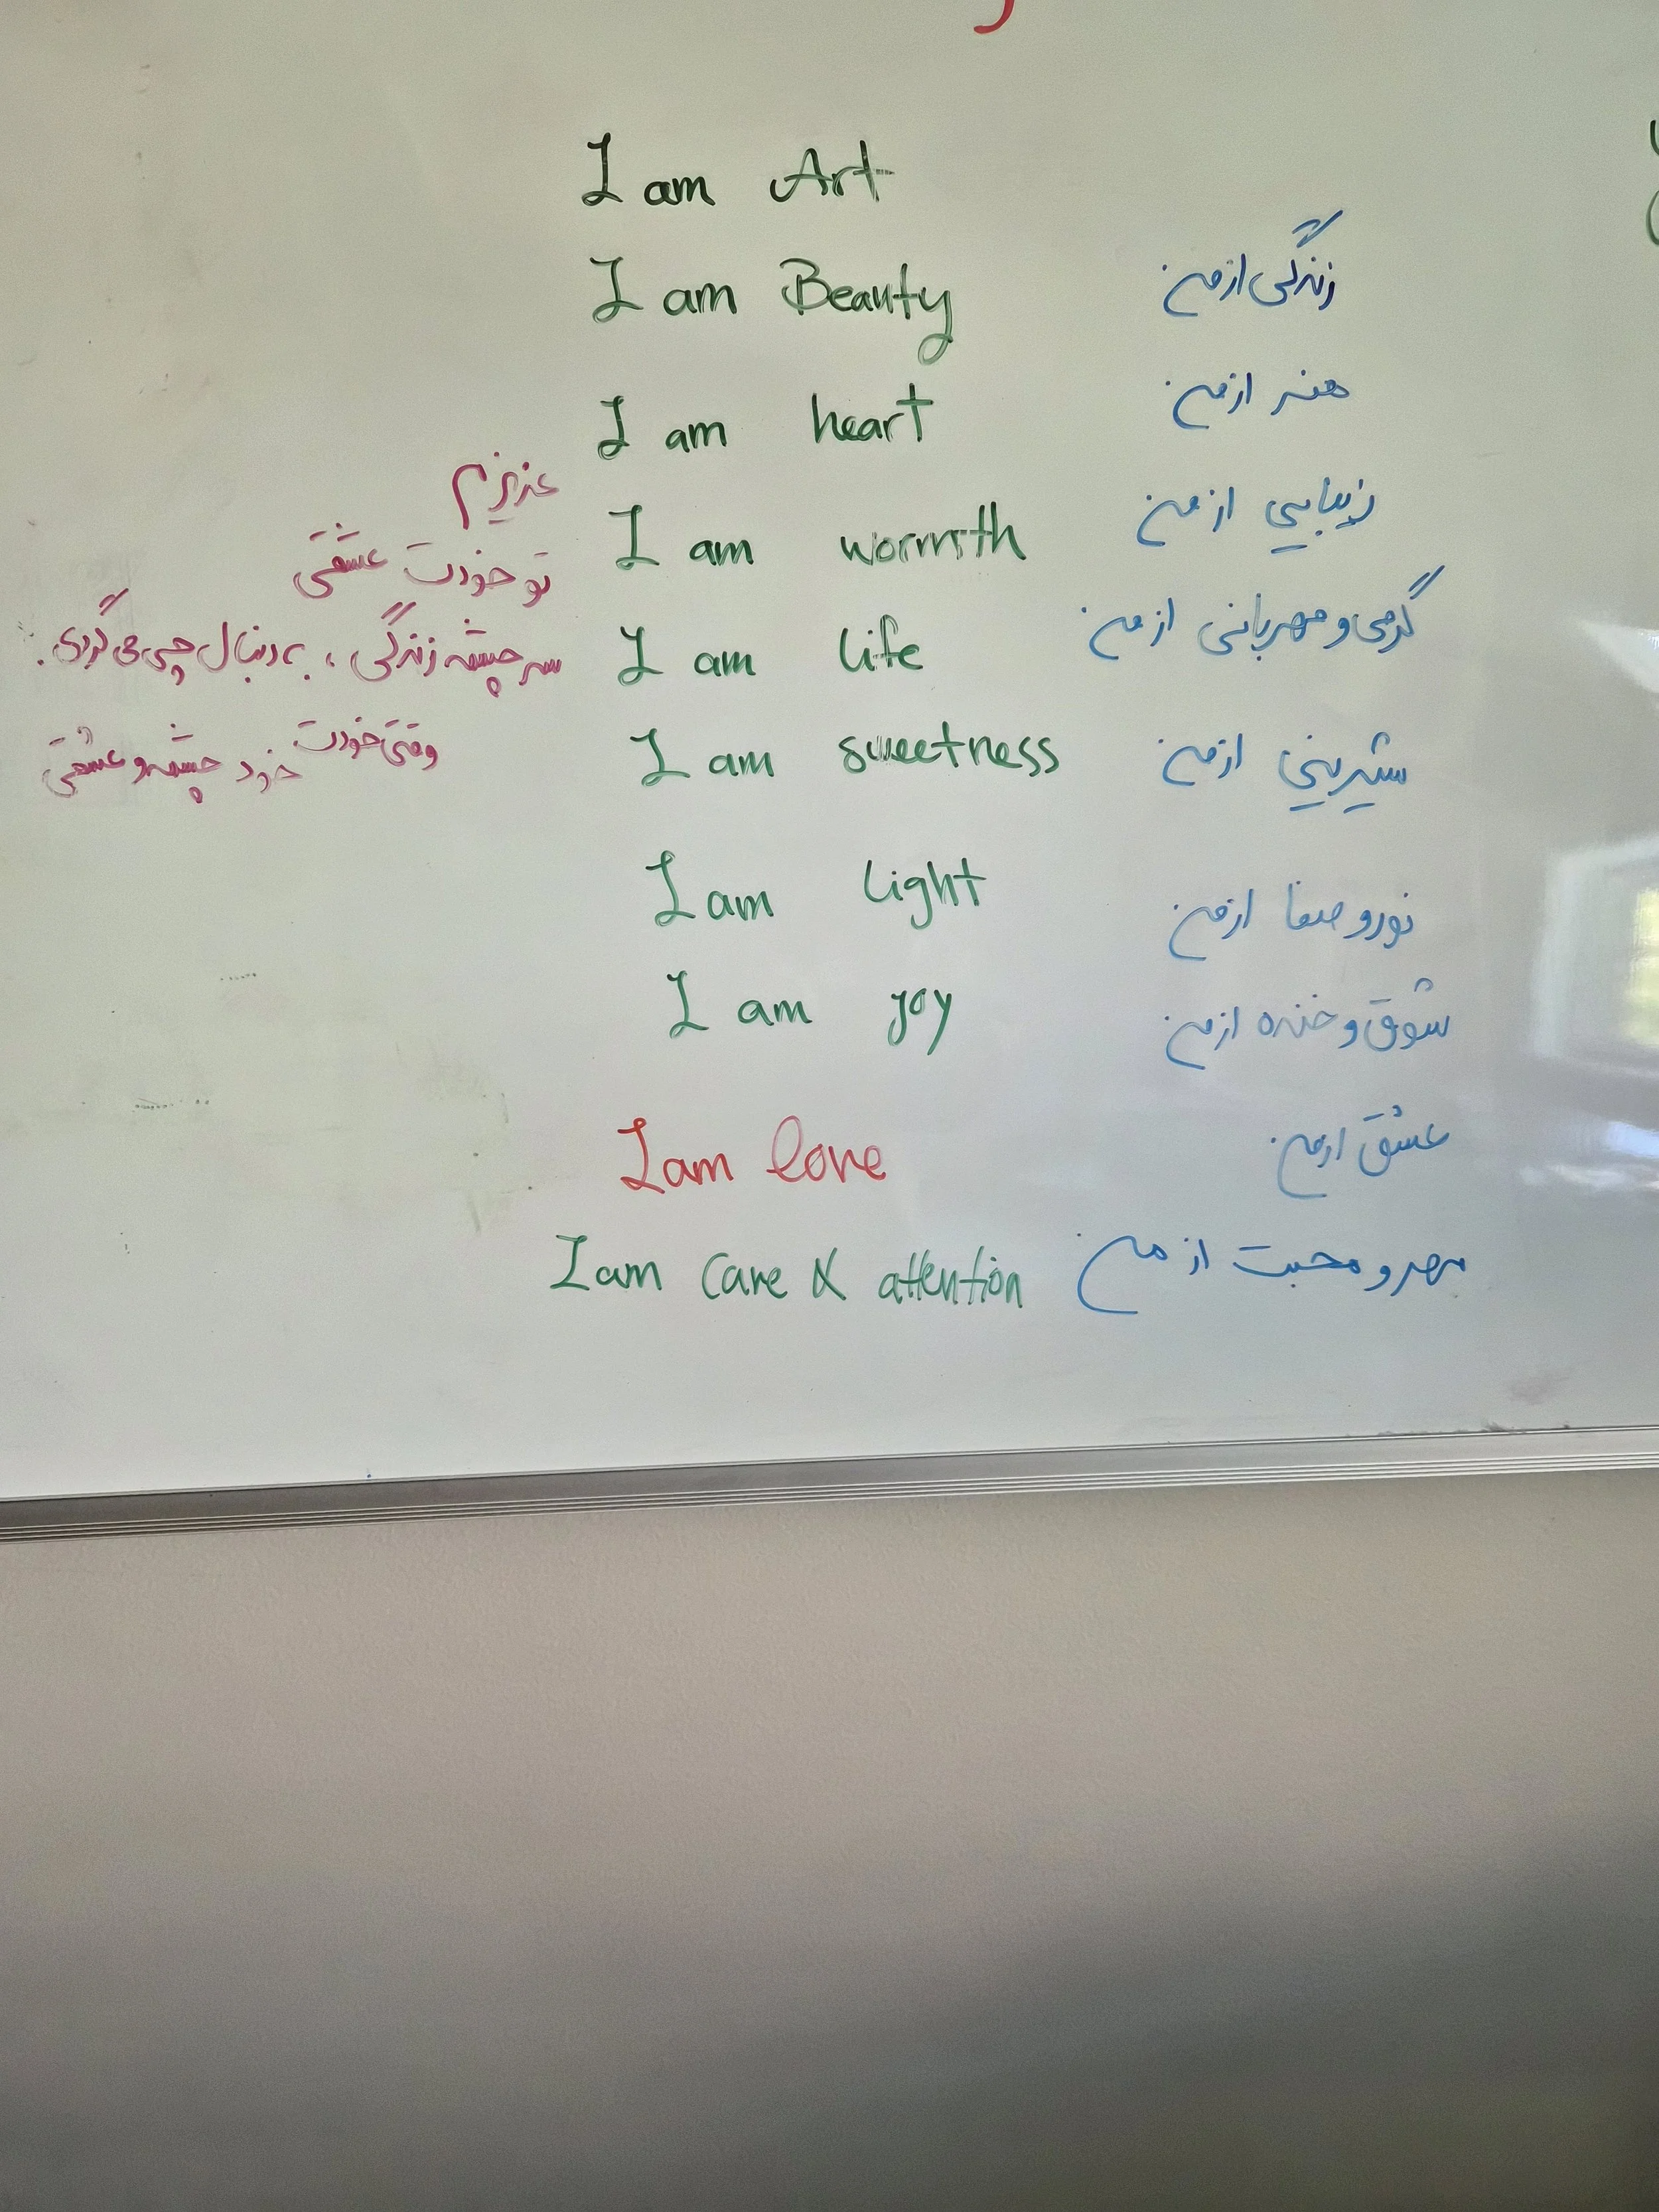 I am Art
I am Beauty
I am heart
I am wormth
I am life
I am sweetness
I am light
I am joy
I am love
I am care & attention
زندگی از من
هنر از من
زیبایی از من
گرمی و مهربانی از من
شیرینی از من
نور و صفا از من
شوق و خنده از من
عشق از من
مهر و محبت از من
عزیزم
تو خودت عشقی
سرچشمه زندگی، به دنبال چی می گردی.
وقتی خودت خود چشمه و عشقی